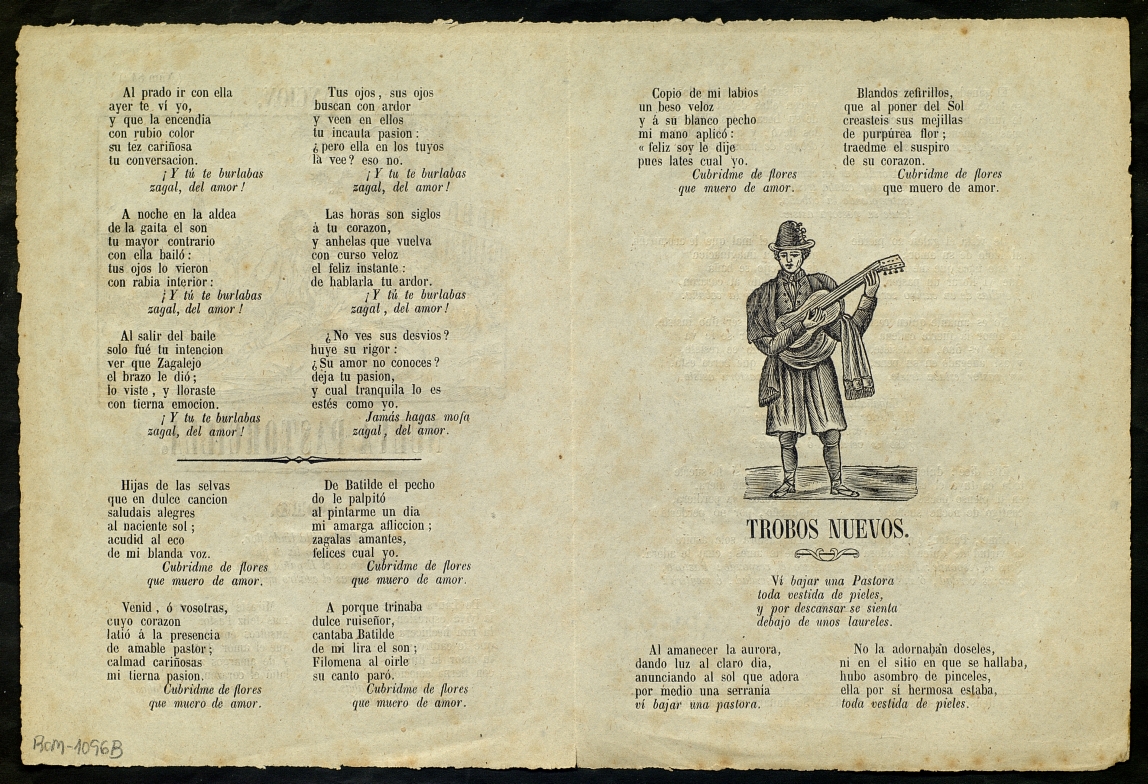 Al prado ir con ella
ayer te ví yo,
y que la encendia
con rubio color
su tez cariñosa
tu conversacion.
¡Y tú te burlabas
zagal, del amor!
A noche en la aldea
de la gaita el son
tu mayor contrario
con ella bailó:
tus ojos lo vieron
con rabia interior:
¡Y tú te burlabas
zagal, del amor!
Al salir del baile
solo fué tu intencion
ver que Zagalejo
el brazo le dió;
lo viste, y lloraste
con tierna emocion.
¡Y tu te burlabas
zagal, del amor!
Tus ojos, sus ojos
buscan con ardor
y veen en ellos
tu incauta pasion:
¿pero ella en los tuyos
la vee? eso no.
¡Y tu te burlabas
zagal, del amor!
Las horas son siglos
á tu corazon,
y anhelas que vuelva
con curso veloz
el feliz instante:
de hablarla tu ardor.
¡Y tú te burlabas
zagal, del amor!
¿No ves sus desvios?
huye su rigor:
¿Su amor no conoces?
deja tu pasion,
y cual tranquila lo es
estés como yo.
Jamás hagas mofa
zagal, del amor.
Hijas de las selvas
que en dulce cancion
saludais alegres
al naciente sol;
acudid al eco
de mi blanda voz.
Cubridme de flores
que muero de amor.
Venid, ó vosotras,
cuyo corazon
latió á la presencia
de amable pastor;
calmad cariñosas
mi tierna pasion.
Cubridme de flores
que muero de amor.
De Batilde el pecho
do le palpitó
al pintarme un dia
mi amarga afliccion;
zagalas amantes,
felices cual yo.
Cubridme de flores
que muero de amor.
A porque trinaba
dulce ruiseñor,
cantaba Batilde
de mi lira el son;
Filomena al oirle
su canto paró.
Cubridme de flores
que muero de amor.
Copio de mi labios
un beso veloz
y á su blanco pecho
mi mano aplicó:
« feliz soy le dije
pues lates cual yo.
Cubridme de flores
que muero de amor.
Blandos zefirillos,
que al poner del Sol
creasteis sus mejillas
de purpúrea flor;
traedme el suspiro
de su corazon.
Cubridme de flores
que muero de amor.
TROBOS NUEVOS.
Ví bajar una Pastora
toda vestida de pieles,
y por descansar se sienta
debajo de unos laureles.
Al amanecer la aurora,
dando luz al claro dia,
anunciando al sol que adora
por medio una serrania
ví bajar una pastora.
No la adornaban doseles,
ni en el sitio en que se hallaba,
hubo asombro de pinceles,
ella por si hermosa estaba,
toda vestida de pieles.
BCM-1096B